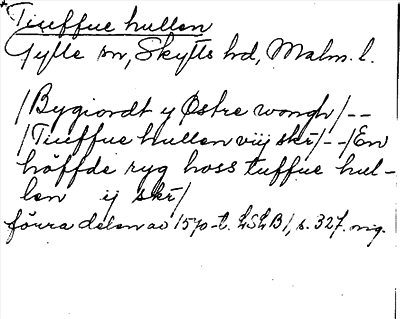 Tiuffue hullen
Gylle sn, Skytts hd, Malm. l.
/Bygiordt y Østre wongh/--
/Tiuffue hullen vij skr/--/En
höffde ryg hoss tuffue hul-
len ij skr/
förra delen av 1570-t. LSLB1, s. 327. nig.